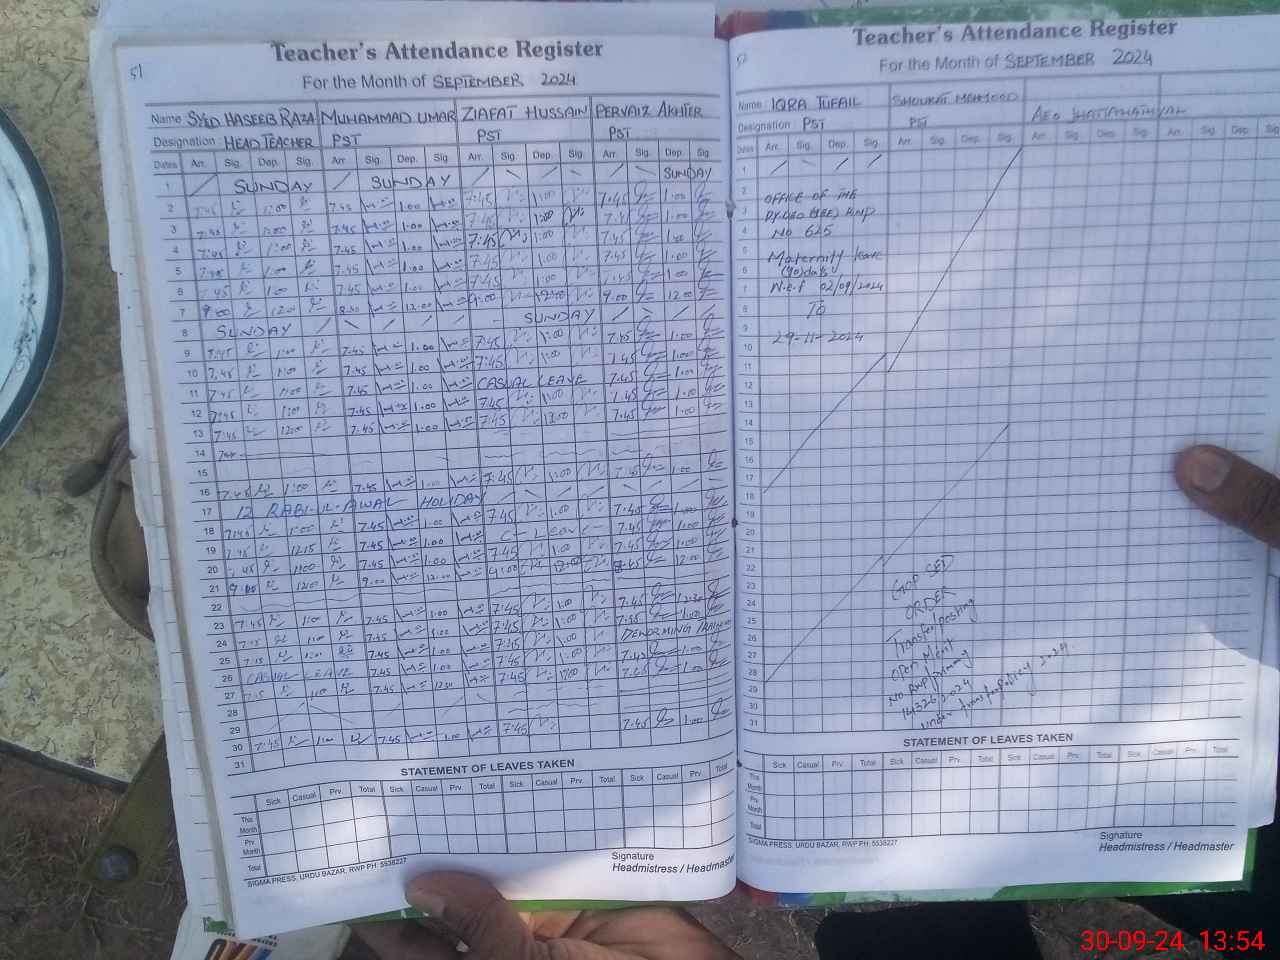 51
Teacher's Attendance Register
For the Month of SEPTEMBER 2024
Name SYED HASEEB RAZA MUHAMMAD UMAR ZIAFAT HUSSAIN PERVAIZ AKHTER
Designation HEAD TEACHER PST PST PST
Dates Arr. Sig. Dep. Sig. Arr. Sig. Dep. Sig. Arr. Sig. Dep. Sig. Arr. Sig. Dep. Sig.
1 SUNDAY SUNDAY SUNDAY
2 7:45 1:00 7.45 1.00 7:45 1:00 7.45 1.00
3 7:45 1:00 7.45 1.00 7:45 1:00 7.45 1.00
4 7:45 1:00 7.45 1.00 7:45 1:00 7.45 1.00
5 7:45 1:00 7.45 1.00 7:45 1:00 7.45 1.00
6 7:45 1:00 7.45 1.00 7:45 1:00 7.45 1.00
7 9:00 12:00 8.30 12.00 9:00 12:00 9.00 12.00
8 SUNDAY SUNDAY
9 7:45 1:00 7.45 1.00 7:45 1:00 7.45 1.00
10 7:45 1:00 7.45 1.00 7:45 1:00 7.45 1.00
11 7:45 1:00 7.45 1.00 CASUAL LEAVE 7.45 1.00
12 7:45 1:00 7.45 1.00 7:45 1:00 7.45 1.00
13 7:45 12:00 7.45 1.00 7:45 12:00 7.45 1.00
14
15
16 7:45 1:00 7.45 1.00 7:45 1:00 7.45 1.00
17 12 RABI-UL-AWAL HOLIDAY
18 7:45 1:00 7.45 1.00 7:45 1:00 7.45 1.00
19 7:45 12:15 7.45 1.00 C-Leave 7.45 1.00
20 7:45 1:00 7.45 1.00 7:45 1:00 7.45 1.00
21 9:00 12:00 9.00 12.00 9:00 12:00 8.45 12.00
22
23 7:45 1:00 7.45 1.00 7:45 1:00 7.45 12:30
24 7:45 1:00 7.45 1.00 7:45 1:00 7.45 1.00
25 7:45 1:00 7.45 1.00 7:45 1:00 DEWORMING
26 CASUAL LEAVE 7.45 1.00 7:45 1:00 7.45 1.00
27 7:45 1:00 7.45 12:00 7:45 12:00 7.45 1.00
28
29
30 7:45 1:00 7.45 1.00 7:45 7.45 1.00
31
STATEMENT OF LEAVES TAKEN
Sick Casual Prv. Total Sick Casual Prv. Total Sick Casual Prv. Total Sick Casual Prv. Total
This Month
Prv. Month
Total
SIGMA PRESS, URDU BAZAR, RWP PH: 5538227
Signature
Headmistress / Headmaster
52
Teacher's Attendance Register
For the Month of SEPTEMBER 2024
Name IQRA TUFAIL SHOUKAT MEHMOOD
Designation PST PST AEO
Dates Arr. Sig. Dep. Sig. Arr. Sig. Dep. Sig. Arr. Sig. Dep. Sig. Arr. Sig. Dep. Sig.
1
2 OFFICE OF THE
3 DY.DEO RWP
4 No 625
5 Maternity leave
6 (90)days
7 W.e.f 02/09/2024
8 TO
9
10 29-11-2024
11
12
13
14
15
16
17
18
19
20
21
22
23
24
25
26
27
28
29
30
31
SED
ORDER
Transfer/posting
Open Merit
No.Rwp/primary
14326/2024
under transfer policy 2024
STATEMENT OF LEAVES TAKEN
Sick Casual Prv. Total Sick Casual Prv. Total Sick Casual Prv. Total Sick Casual Prv. Total
This Month
Prv. Month
Total
SIGMA PRESS, URDU BAZAR, RWP PH: 5538227
Signature
Headmistress / Headmaster
30-09-24 13:54